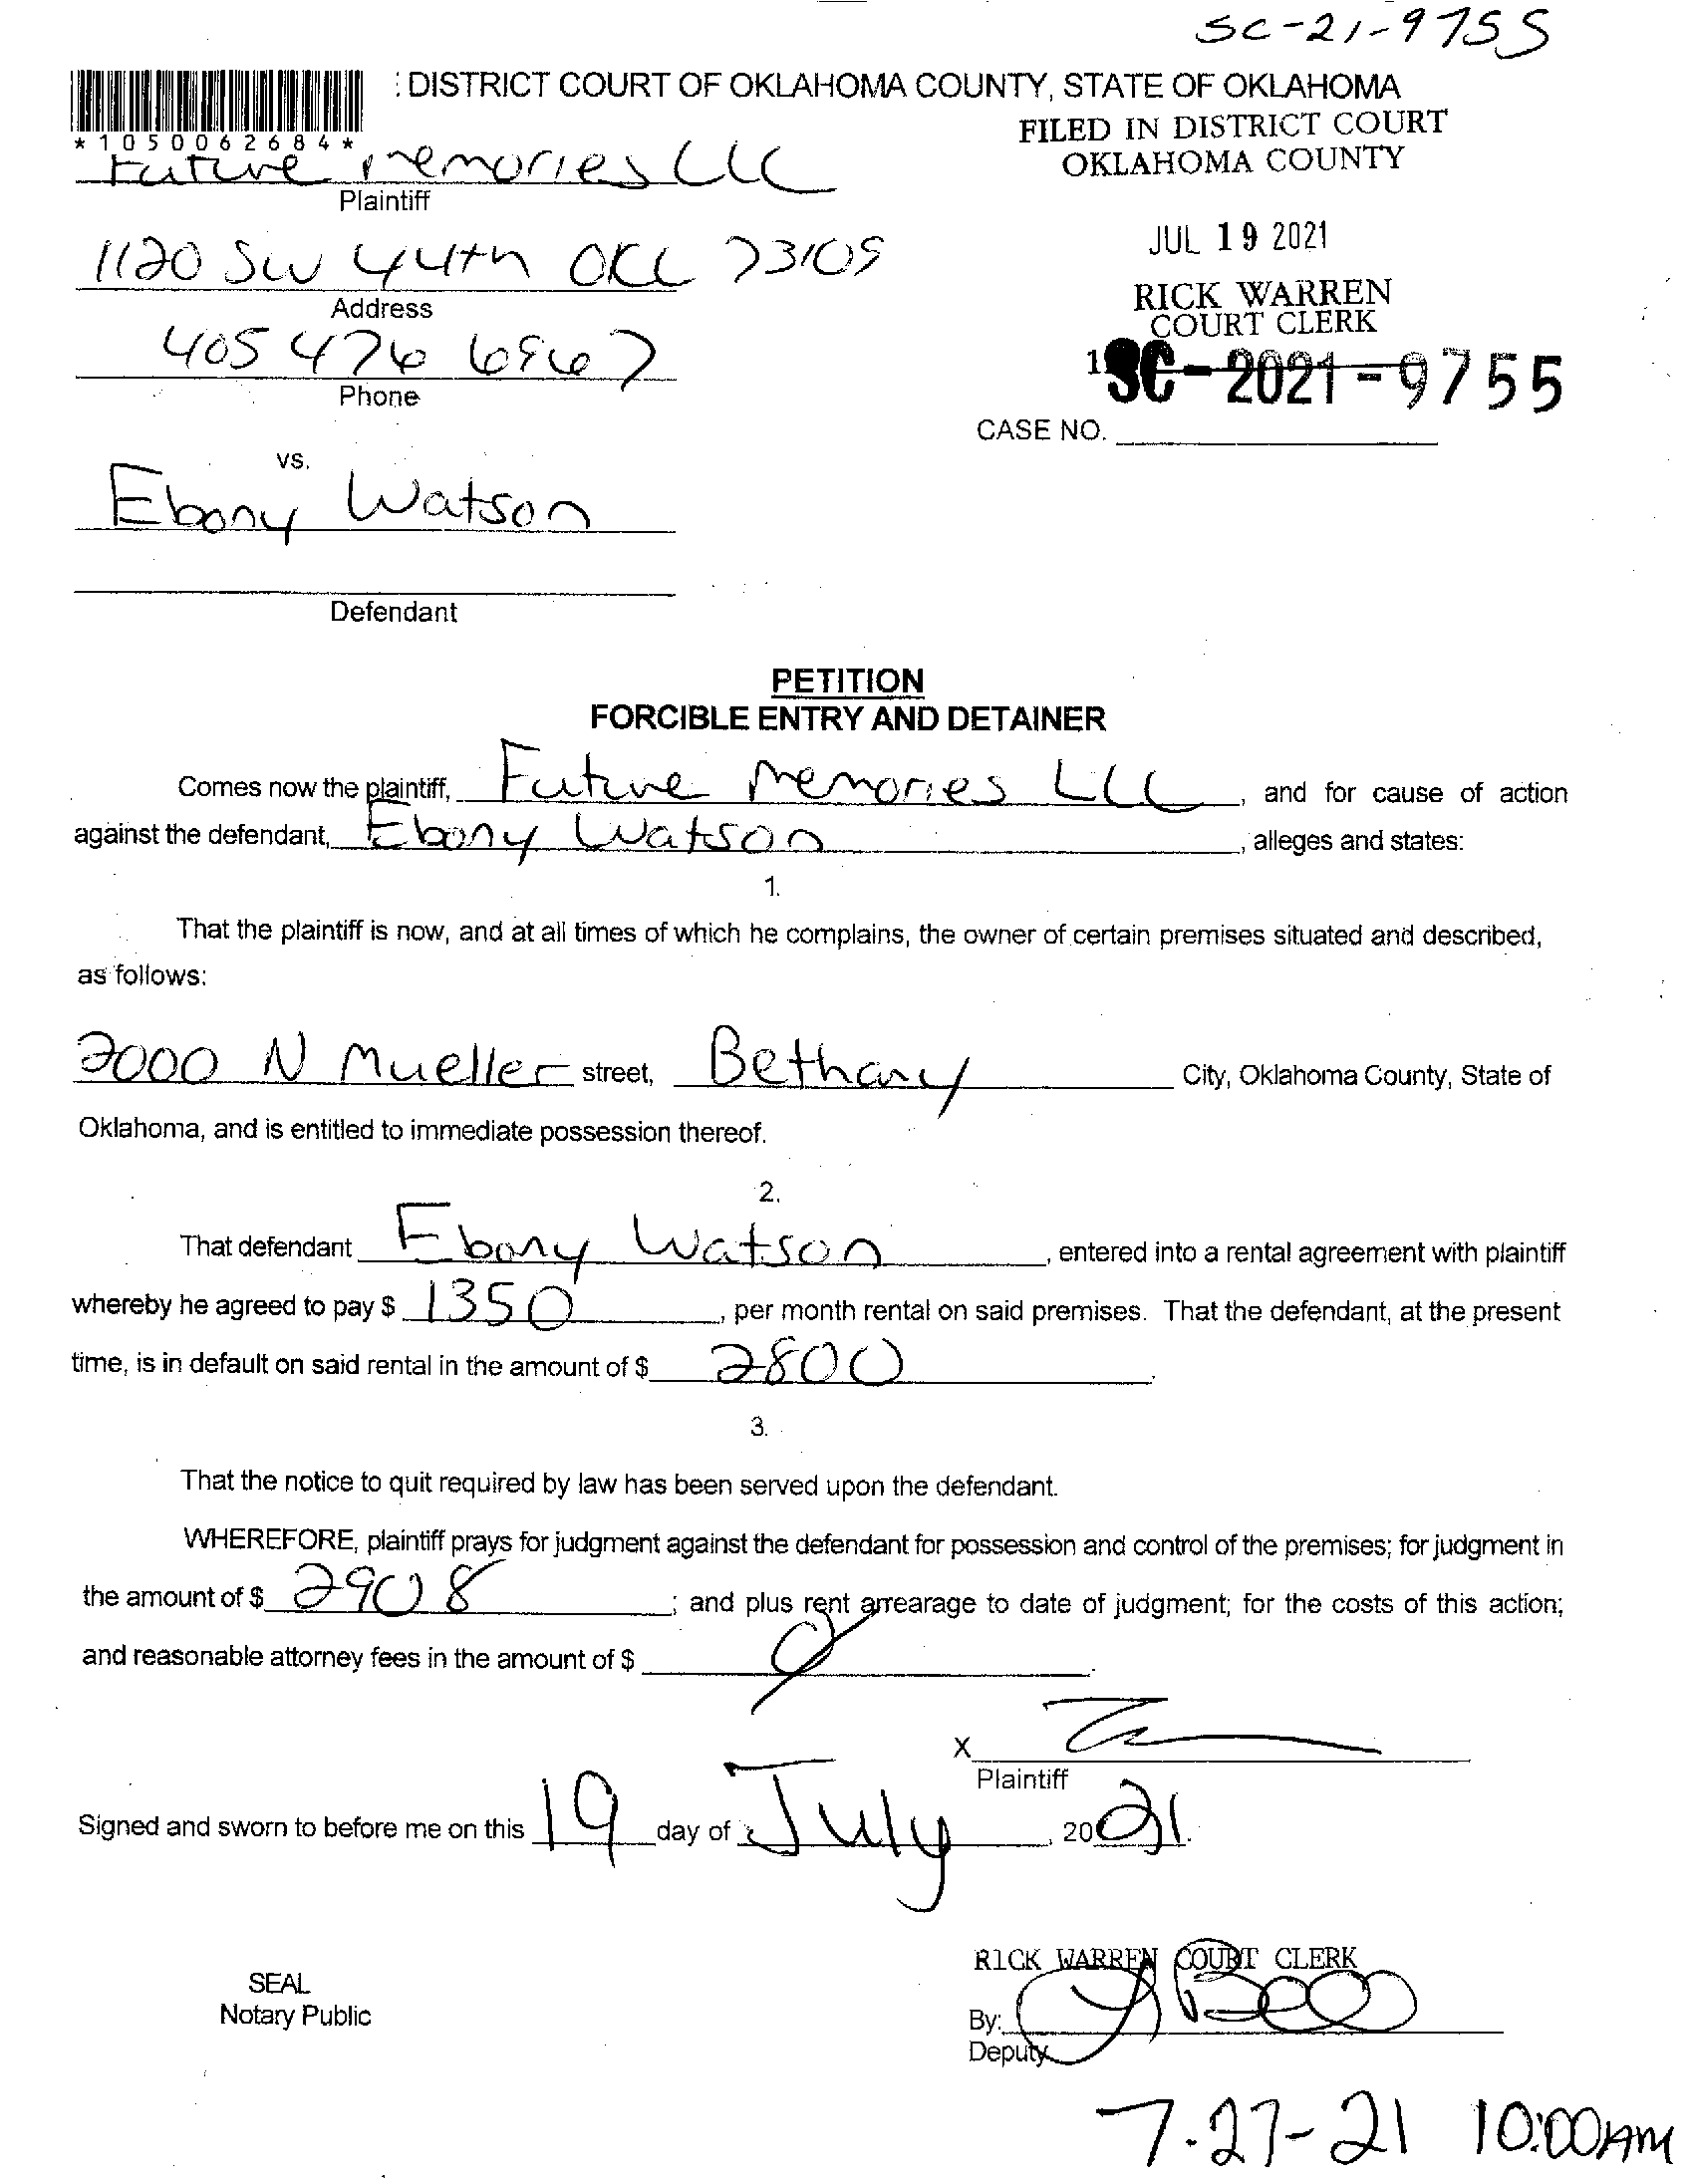 SC-21-9755
: DISTRICT COURT OF OKLAHOMA COUNTY, STATE OF OKLAHOMA
FILED IN DISTRICT COURT
OKLAHOMA COUNTY
*1050062684*
Future Memories LLC
Plaintiff
JUL 19 2021
1120 SW 44th OKC 73109
Address
RICK WARREN
COURT CLERK
405 476 6967
Phone
SC-2021-9755
CASE NO.
vs.
Ebony Watson
Defendant
PETITION
FORCIBLE ENTRY AND DETAINER
Comes now the plaintiff, Future Memories LLC, and for cause of action
against the defendant, Ebony Watson, alleges and states:
1.
That the plaintiff is now, and at all times of which he complains, the owner of certain premises situated and described,
as follows:
2000 N Mueller street, Bethany City, Oklahoma County, State of
Oklahoma, and is entitled to immediate possession thereof.
2.
That defendant Ebony Watson, entered into a rental agreement with plaintiff
whereby he agreed to pay $ 1350, per month rental on said premises. That the defendant, at the present
time, is in default on said rental in the amount of $ 2800.
3.
That the notice to quit required by law has been served upon the defendant.
WHEREFORE, plaintiff prays for judgment against the defendant for possession and control of the premises; for judgment in
the amount of $ 2908; and plus rent arrearage to date of judgment; for the costs of this action;
and reasonable attorney fees in the amount of $
X
Plaintiff
Signed and sworn to before me on this 19 day of July, 2021.
RICK WARREN COURT CLERK
SEAL
Notary Public
By:
Deputy
7-27-21 10:00AM